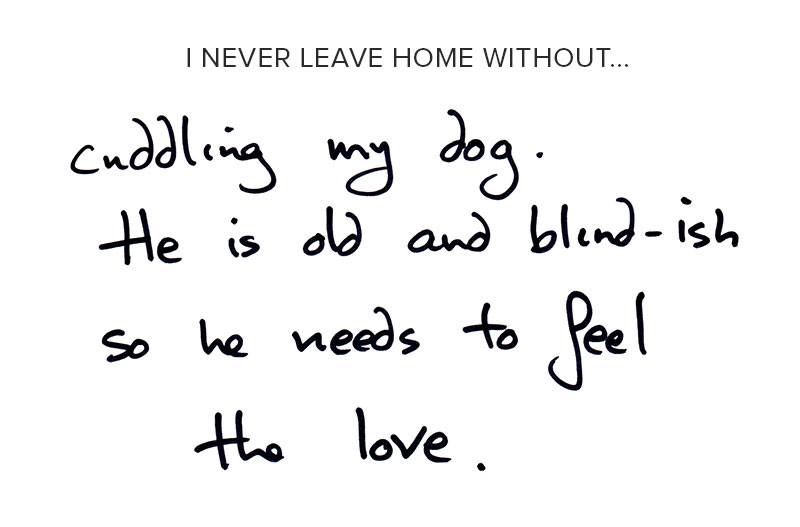 I NEVER LEAVE HOME WITHOUT...
cuddling my dog.
He is old and blind-ish
so he needs to feel
the love.